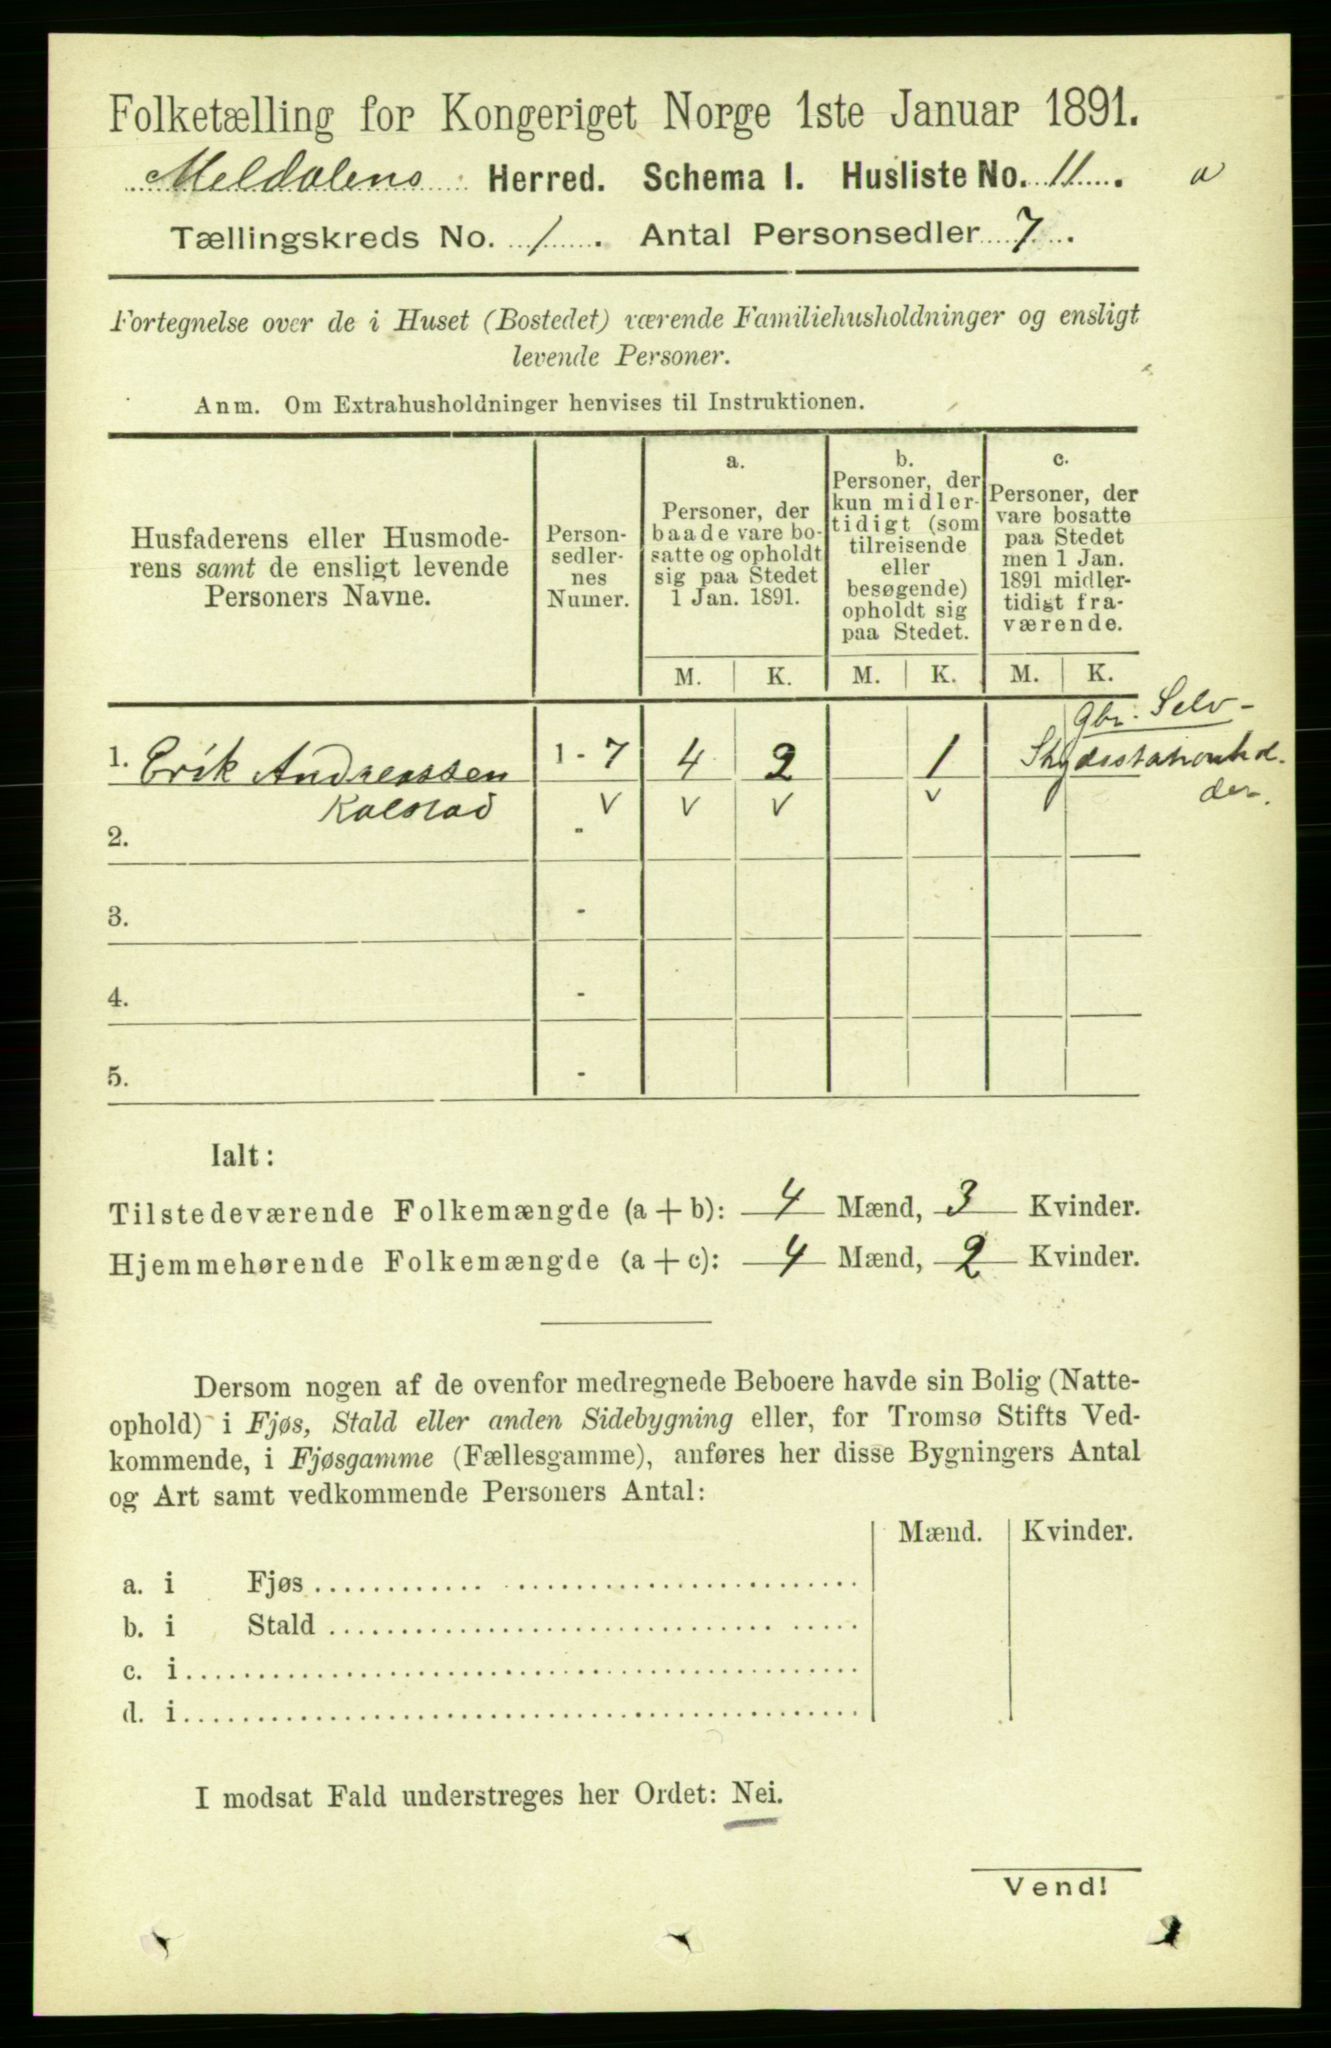 Folketælling for Kongeriget Norge 1ste Januar 1891.
Meldalens Herred. Schema I. Husliste No. 11. a
Tællingskreds No. 1. Antal Personsedler 7.
Fortegnelse over de i Huset (Bostedet) værende Familiehusholdninger og ensligt
levende Personer.
Anm. Om Extrahusholdninger henvises til Instruktionen.
Husfaderens eller Husmode-
rens samt de ensligt levende
Personers Navne.
Person-
sedler-
nes
Numer.
a.
Personer, der
baade vare bo-
satte og opholdt
sig paa Stedet
1 Jan. 1891.
b.
Personer, der
kun midler-
tidigt (som
tilreisende
eller
besøgende)
opholdt sig
paa Stedet.
c.
Personer, der
vare bosatte
paa Stedet
men 1 Jan.
1891 midler-
tidigt fra-
værende.
M. K. M. K. M. K.
Gbr. Selv-
1. Erik Andreassen 1 - 7 4 2 1 Skydsstationhol-
der.
Kalstad v v v v
2. -
3. -
4. -
5. -
Ialt:
Tilstedeværende Folkemængde (a + b): 4 Mænd, 3 Kvinder.
Hjemmehørende Folkemængde (a + c): 4 Mænd, 2 Kvinder.
Dersom nogen af de ovenfor medregnede Beboere havde sin Bolig (Natte-
ophold) i Fjøs, Stald eller anden Sidebygning eller, for Tromsø Stifts Ved-
kommende, i Fjøsgamme (Fællesgamme), anføres her disse Bygningers Antal
og Art samt vedkommende Personers Antal:
Mænd. Kvinder.
a. i Fjøs
b. i Stald
c. i
d. i
I modsat Fald understreges her Ordet: Nei.
Vend!